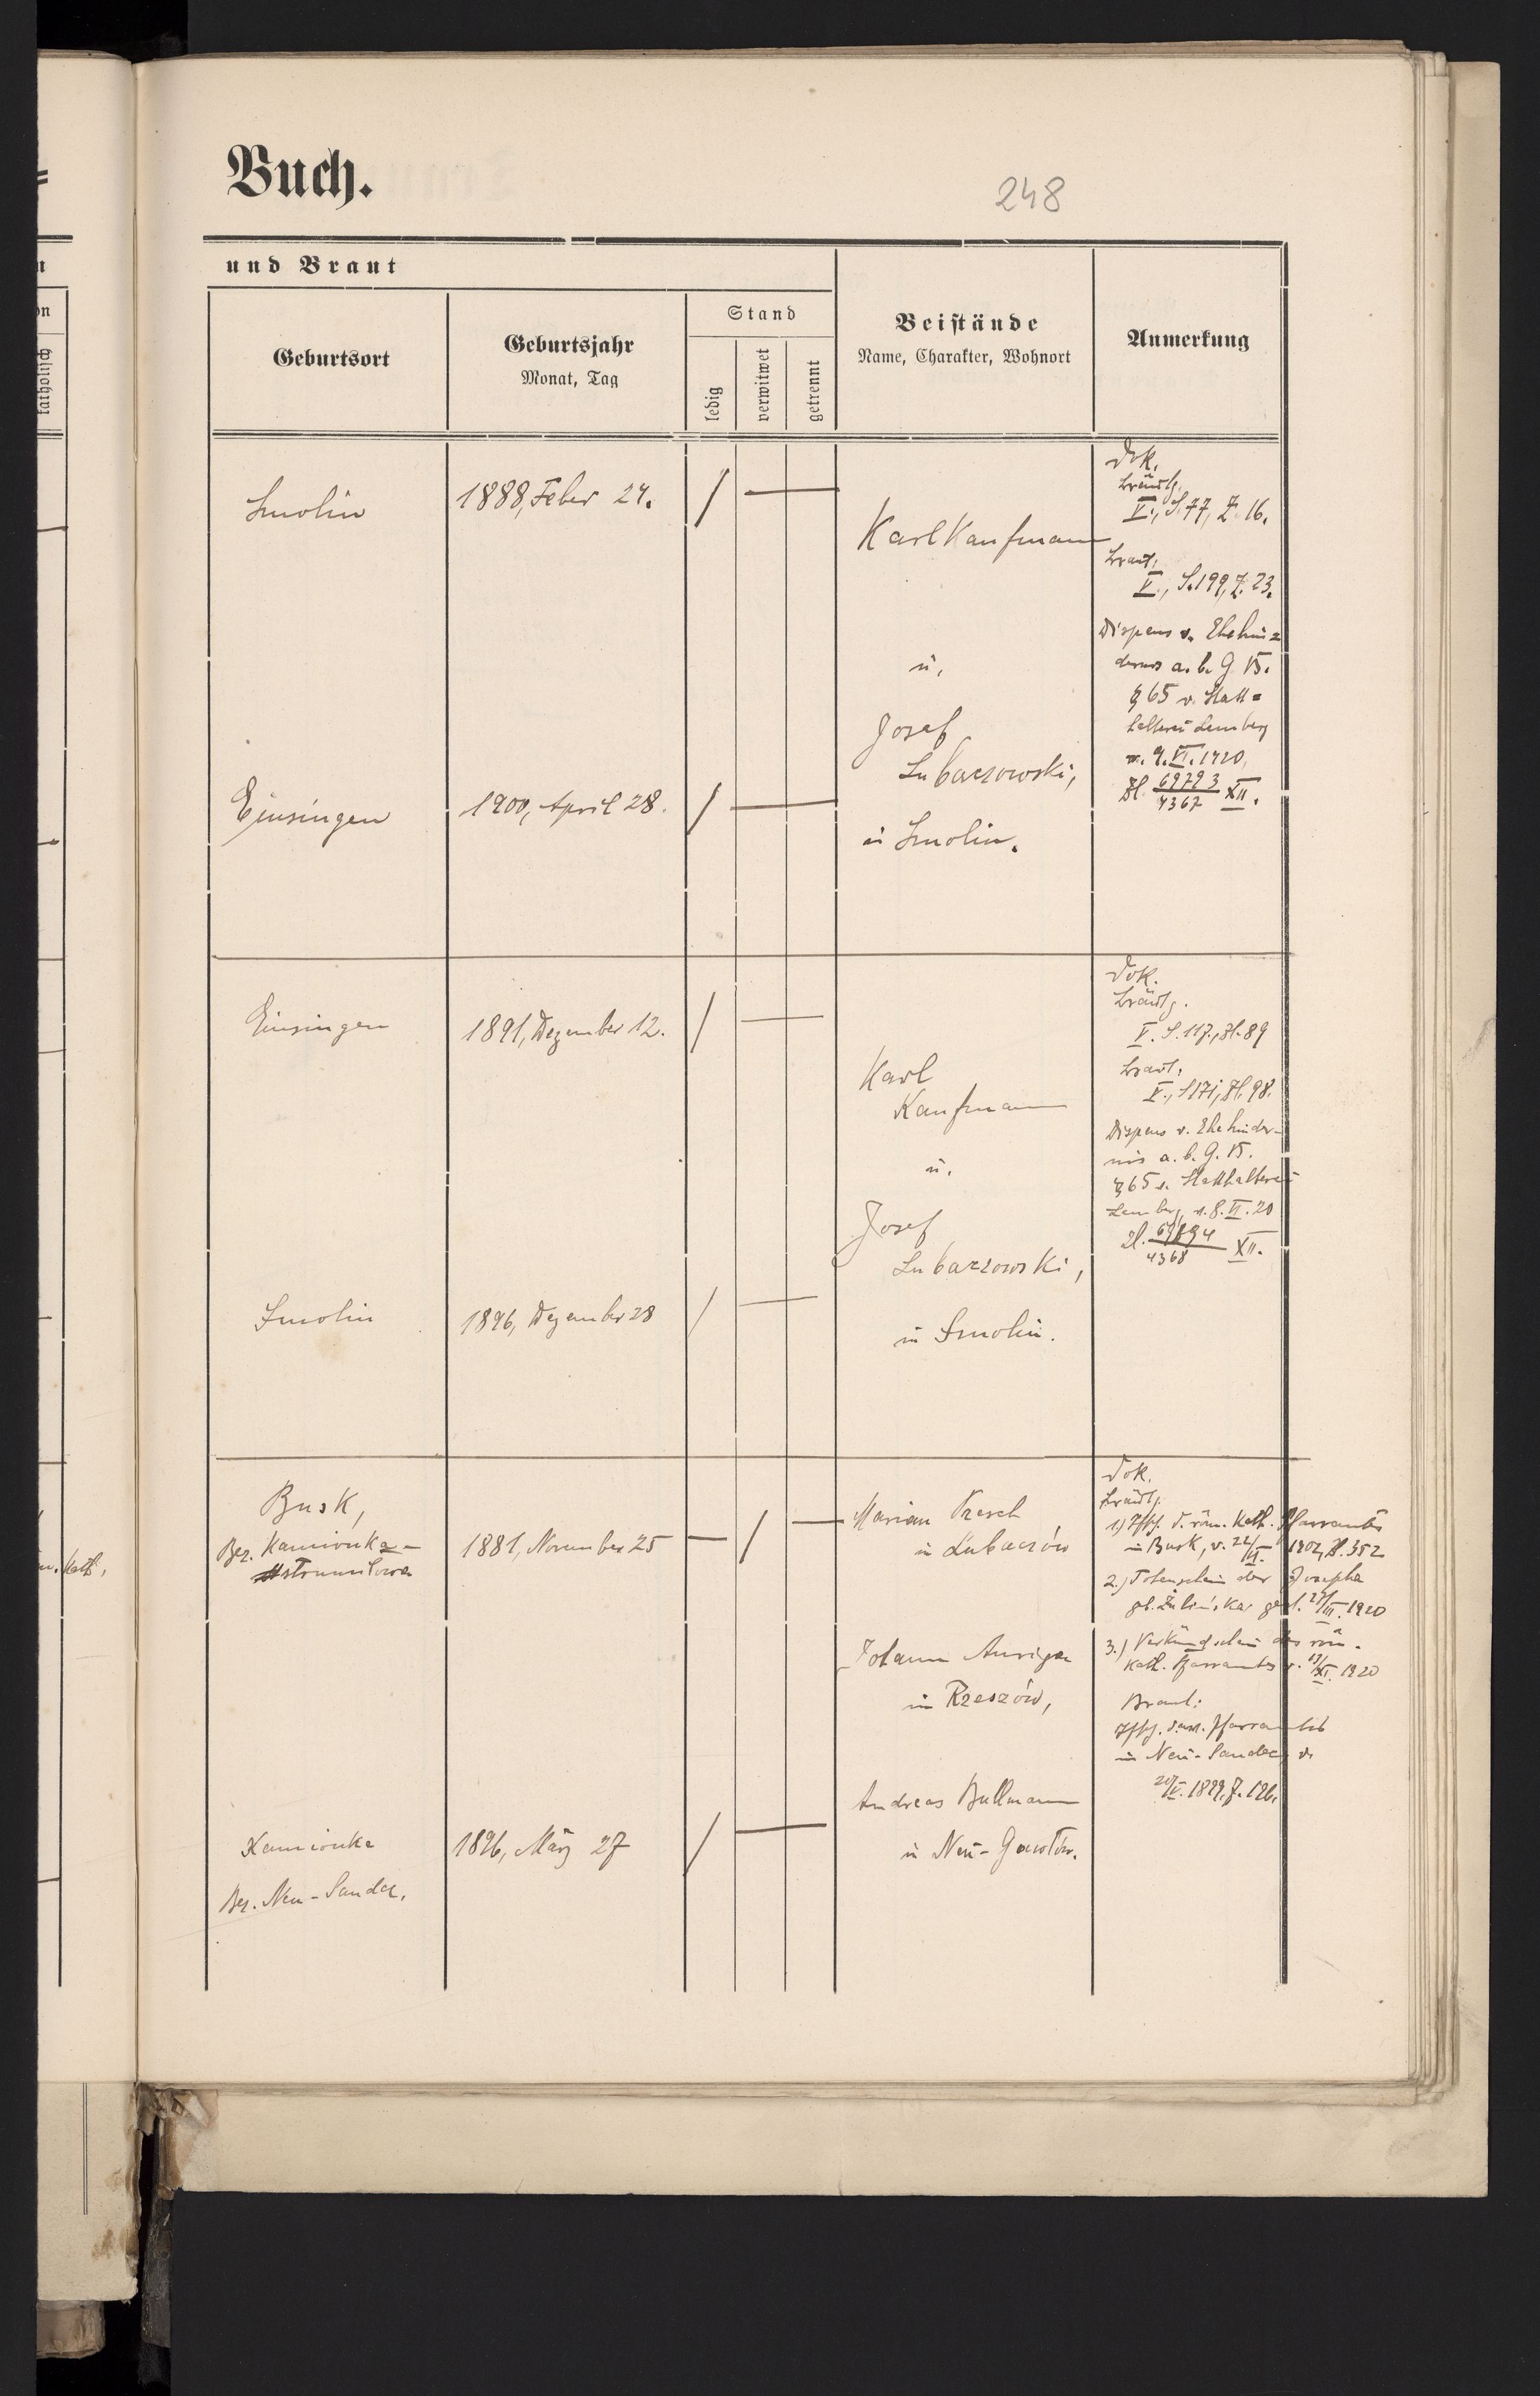 Buch.
248
und Braut
Geburtsort
Geburtsjahr
Monat, Tag
Stand
ledig
verwitwet
getrennt
Beistände
Name, Charakter, Wohnort
Anmerkung
katholisch
Smolin
1888, Feber 24.
Karl Kaufmann
u.
Josef
Lubaczowski,
in Smolin.
Dok.
Bräutg.
V., S. 77, Z. 16.
Braut.
V., S. 199, Z. 23.
Dispens v. Ehehin=
dernis a. b. G. B.
§ 65 v. Statt=
halterei Lemberg
v. 9. VI. 1920,
Zl. 69793/4367 XII.
Einsingen
1900, April 28.
Einsingen
1891, Dezember 12.
Karl
Kaufmann
u.
Josef
Lubaczowski,
in Smolin.
Dok.
Bräutg.
V. S. 117., Zl. 89
Braut.
V., S 171, Zl. 98.
Dispens v. Ehehinder-
nis a. b. G. B.
§ 65 v. Statthalterei
Lemberg v. 8. VI. 20
Zl. 4368 XII.
Smolin
1896, Dezember 28
Busk,
Bez. Kamionka-
strumilowa
1881, November 25
Marian
in Lubaczów
Johann
in Rzeszów,
Andreas Bullmann
in Neu-
Dok.
Bräutg.
1.) d. röm. Kath. Pfarramtes
in Busk, v. 1902, Zl. 352
2.) Totenschein der Josepha
gb. Żulińska gest. 1920
3.) Verkündschein des röm.
Kath. Pfarramtes v. XI. 1920
Braut:
Pfarramtes
in Neu-Sandez v.
Kamionka
Bez. Neu-Sandez.
1896, März 27